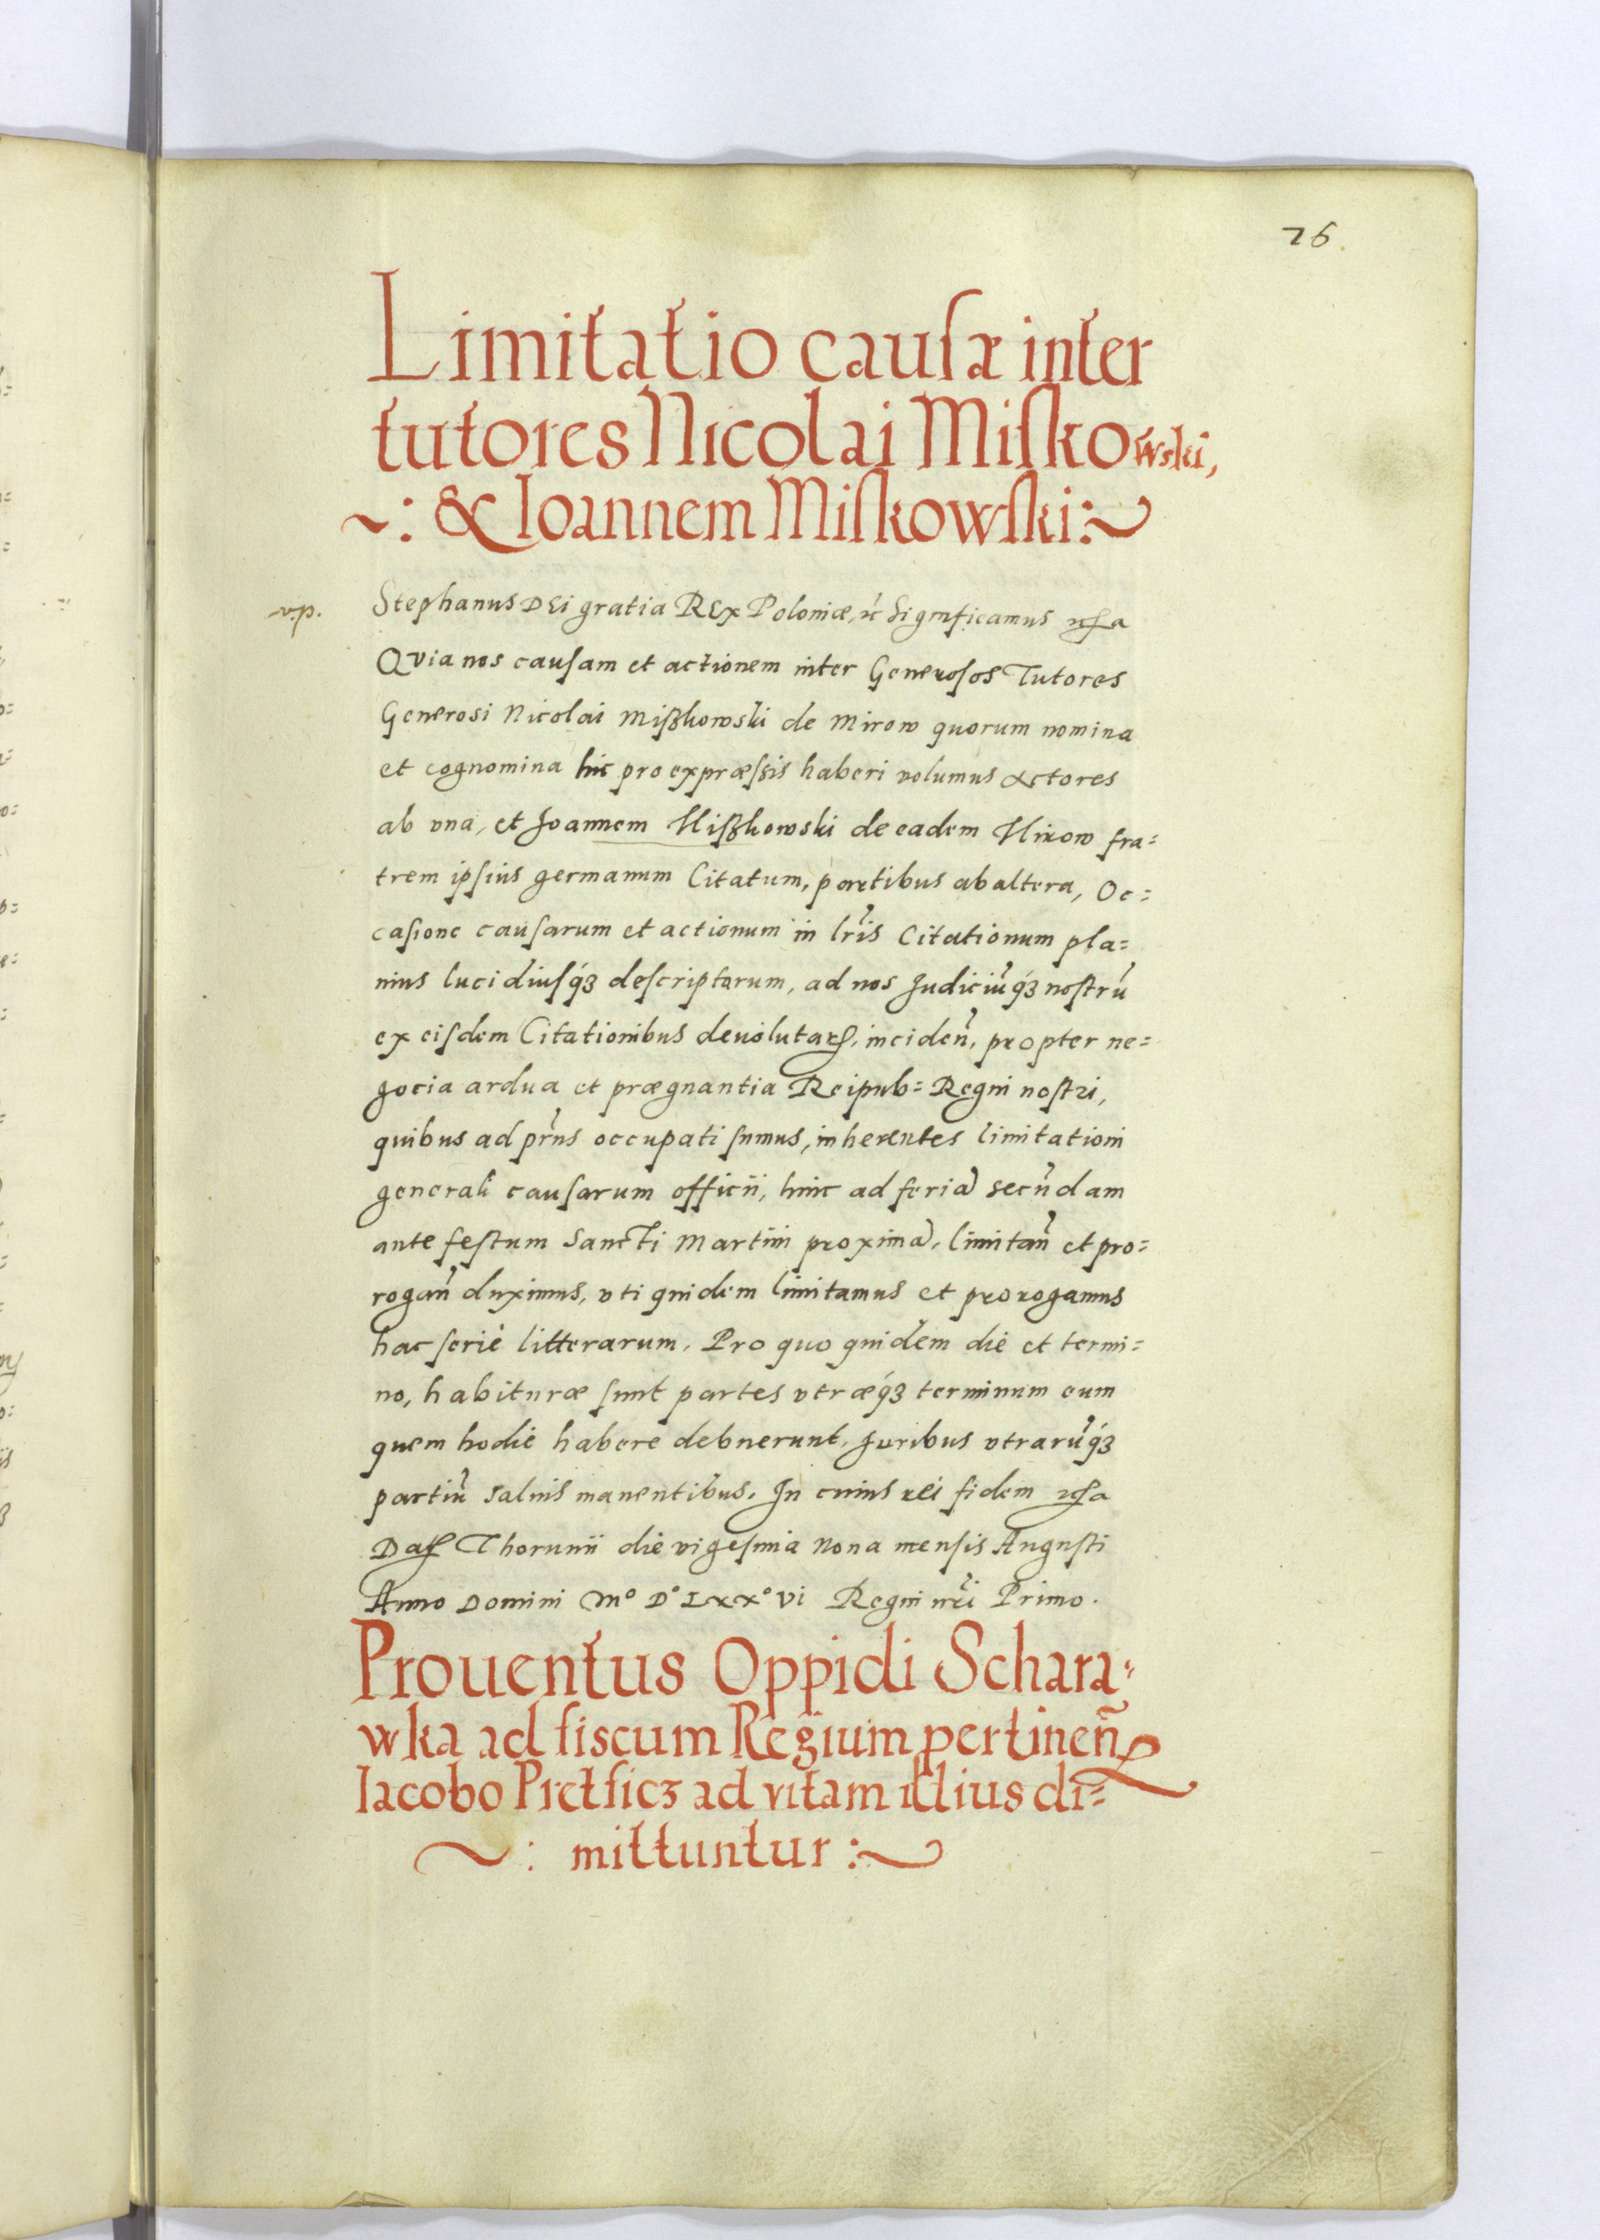 26.
Limitatio causæ inter
tutores Nicolai Miskowski,
~: & Ioannem Miskowski:~
v.p.
Stephanus DEi gratia REx Poloniæ, rc̃ Significamus
Quia nos causam et actionem inter Generosos Tutores
Generosi Nicolai Mißkowski de Mirow quorum nomina
et cognomina hic pro expræssis haberi volumus Actores
ab vna, et Joannem Mißkowski de eadem Mirow fra=
trem ipsius germanum Citatum, partibus ab altera, Oc=
casione causarum et actionum in lr̃is Citationum pla=
nius lucidiusq́ꝫ descriptarum, ad nos Judiciũq́ꝫ nostrũ
ex eisdem Citationibus deuolutaꝝ, inciden̄, propter ne=
gocia ardua et prægnantia Reipub= Regni nostri,
quibus ad pr̃ns occupati sumus, inherentes limitationi
generali causarum officii, hinc ad feriã secũdam
ante festum Sancti Martini proximã, limitan̄ et pro=
rogan̄ duximus, vti quidem limitamus et prorogamus
hac serie litterarum. Pro quo quidem die et termi=
no, habituræ sunt partes vtræq́ꝫ terminum eum
quem hodie habere debuerunt, Juribus vtrarũq́ꝫ
partiũ saluis manentibus. In cuius rei fidem
Datꝭ Thorunii die vigesima Nona mensis Augusti
Anno Domini Mº Dº Lxxº vi Regni nr̃i Primo.
Prouentus Oppidi Schara=
wka ad fiscum Regium pertinen̄
Iacobo Pretficz ad vitam illius di=
~: mittuntur :~